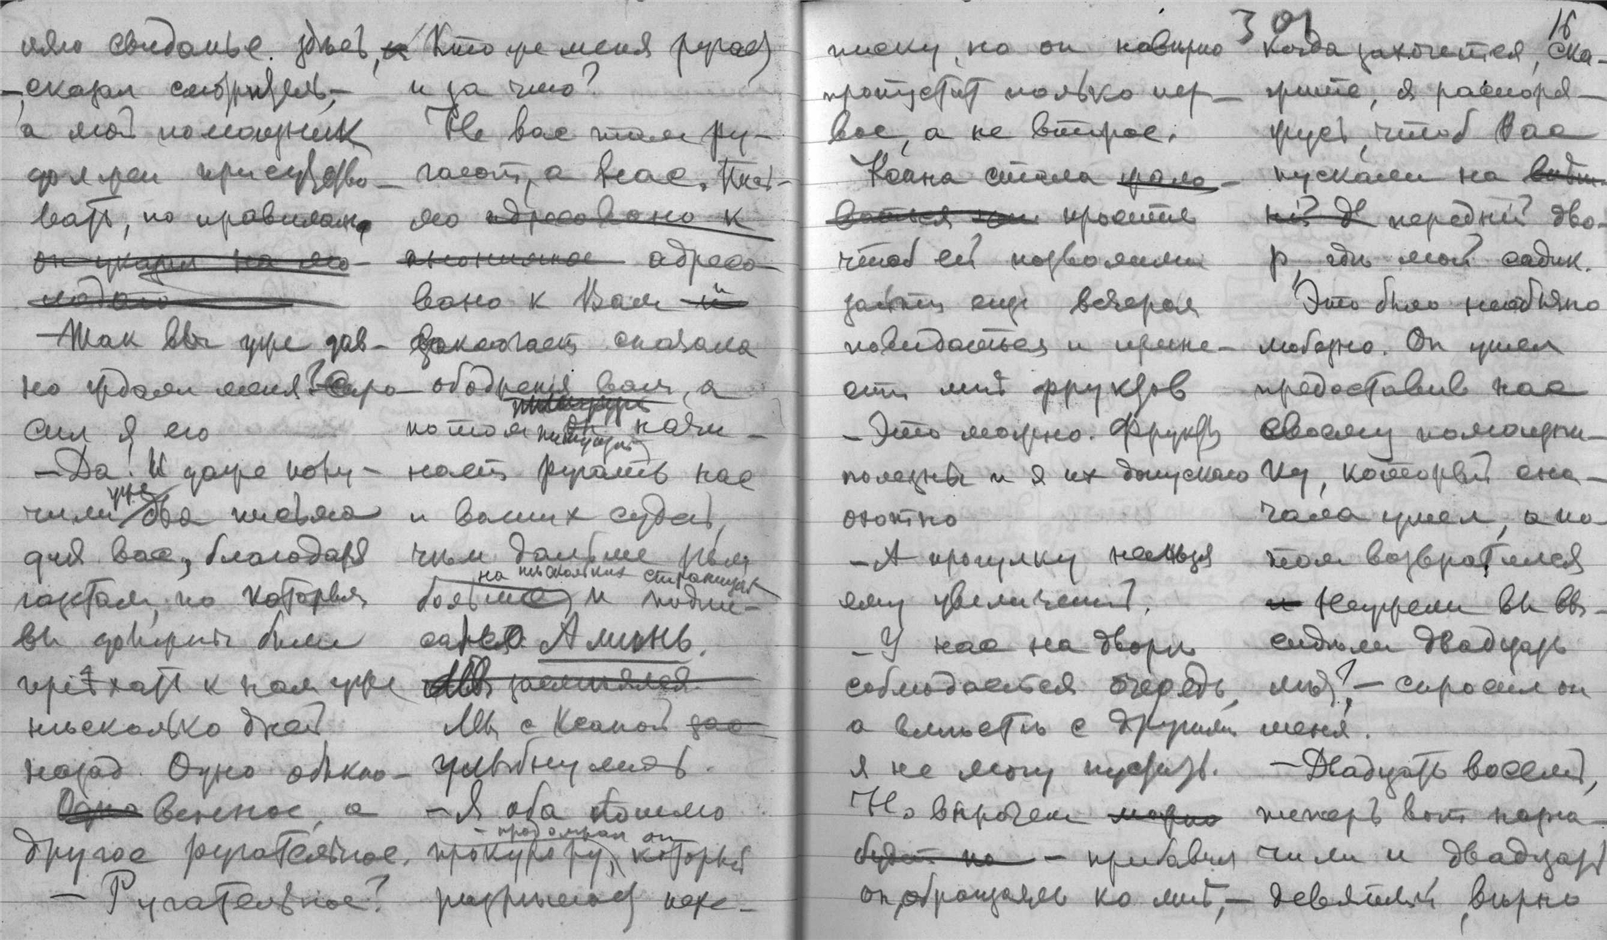 няю свиданье здѣсь,
– сказал смотритель, –
а мой помощник
должен присутство-
вать, по правилам,
он указал на мо-
лодого
– Так вы уже дав-
но ждали меня? – спро-
сил я его
– Да! И даже полу-
чили уже два письма
для вас, благодаря
газетам, по которым
вы должны были
приѣхать к нам уже
нѣсколько дней
назад. Одно обыкно-
Одно венное, а
другое ругательное.
– Ругательное?
Кто же меня ругает
и за что?
Не вас там ру-
гают, а нас. Пись-
мо адресовано к
анонимное адресо-
вано к Вам и
заключает сначала
ободренія вам, а
потом он начи-
нает ругать нас
и ваших судей,
чѣм дальше тѣм
на нѣскольких страницах
больше, и подпи-
сано Аминь.
Мы засмѣялся.
Мы с Ксаной зас
улыбнулись.
– Я оба пошлю
– продолжал он
прокурору, который
разрѣшает пере-
301
16
писку, но он навѣрно
пропустит только пер-
вое, а не второе.
Ксана стала жало-
ваться и просить
чтоб ей позволили
зайти еще вечером
повидаться и прине-
сти мнѣ фруктов
– Это можно. Фрукты
полезны и я их допускаю
охотно
– А прогулку нельзя
ему увеличить?
– У нас на дворѣ
соблюдается очередь,
а вмѣстѣ с другими
я не могу пускать.
Но впрочем можно
будет по – прибавил
он, обращаясь ко мнѣ, –
когда захочется, ска-
жите, я распоря-
жусь, чтоб Вас
пускали на
передній дво-
р, гдѣ мой садик.
Это было необычно
любезно. Он ушел
предоставив нас
своему помощни-
ку, который сна-
чала ушел, а по-
том возвратился
и Неужели вы вы-
сидѣли двадцать
лѣт? – спросил он
меня.
– Двадцать восемь,
теперь вот нача-
чили и двадцать
девятый, вѣрно